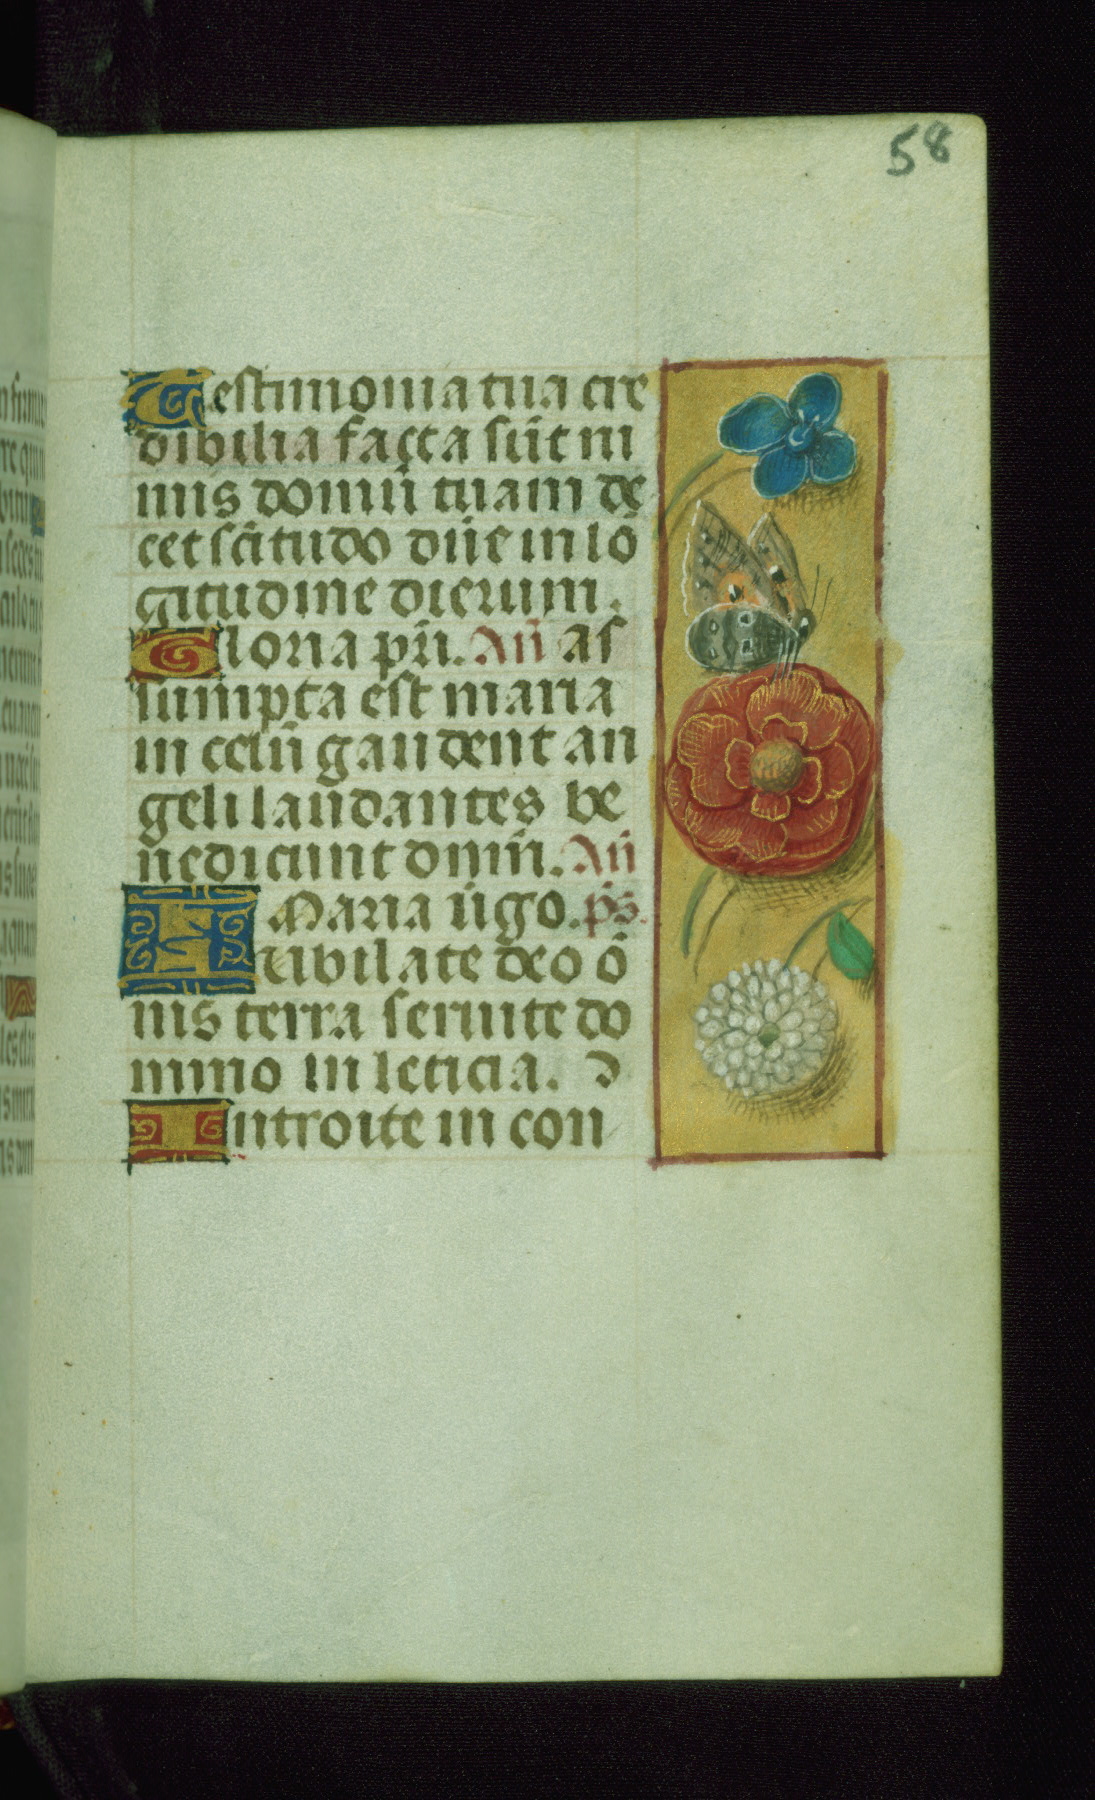 58
Testimonia tua cre
dibilia facta sūt ni
mis domū tuam de
cet sc̄itudo dn̄e in lō
gitudine dierum.
Gloria pr̄i. An̄ as
sumpta est maria
in celū gaudent an
geli laudantes be
nedicunt dn̄m. An̄
Maria v̄go. p̄s.
Iubilate deo ō
nis terra seruite do
mino in leticia. 
Introite in con